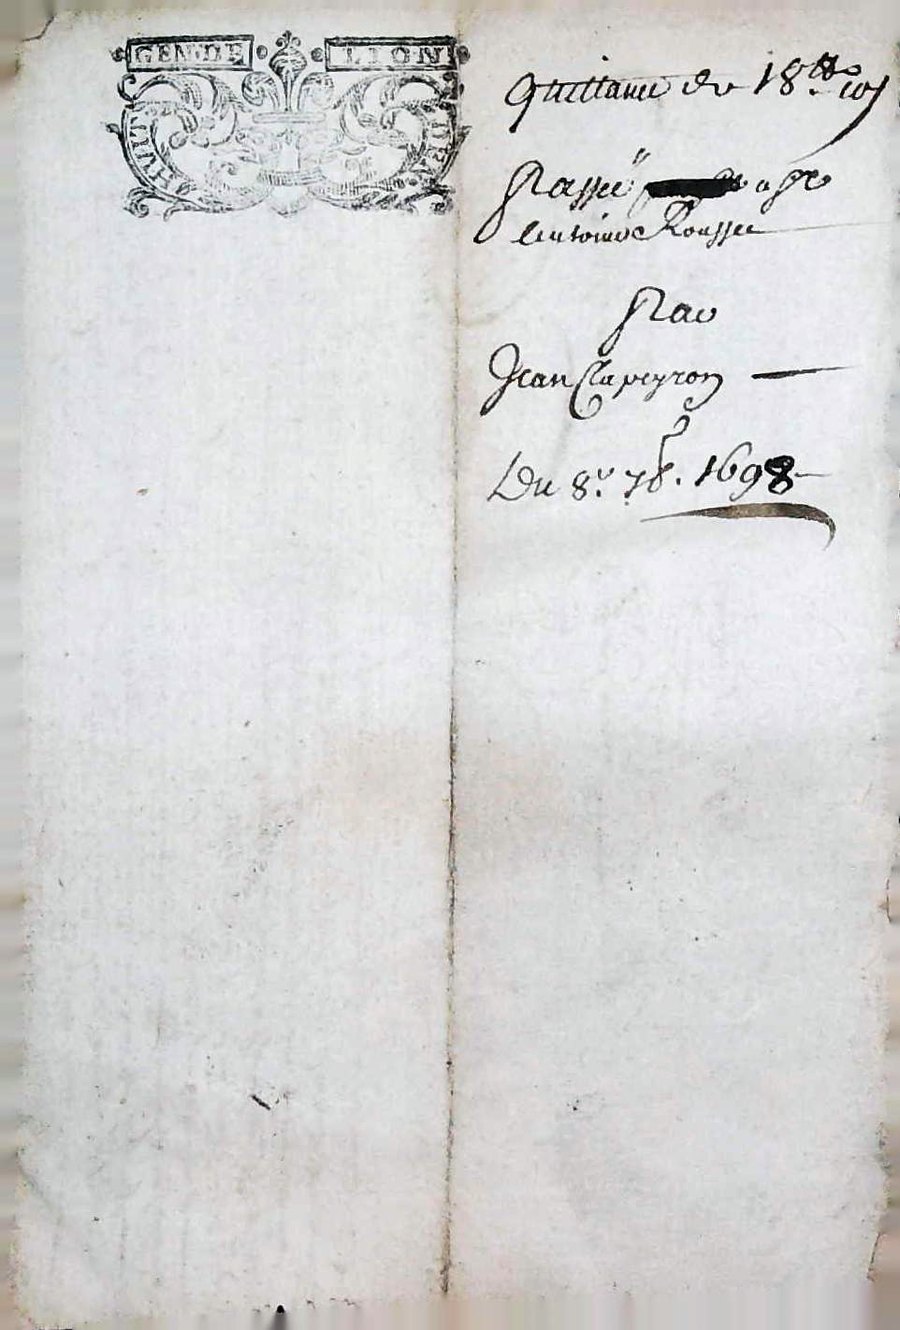 GEN. DE LION
HUIT DEN.
quittance de 18 tt 10 s
passee a sr
Antoine Roussee
par
Jean Clapeyron
Du 8e 7br. 1698